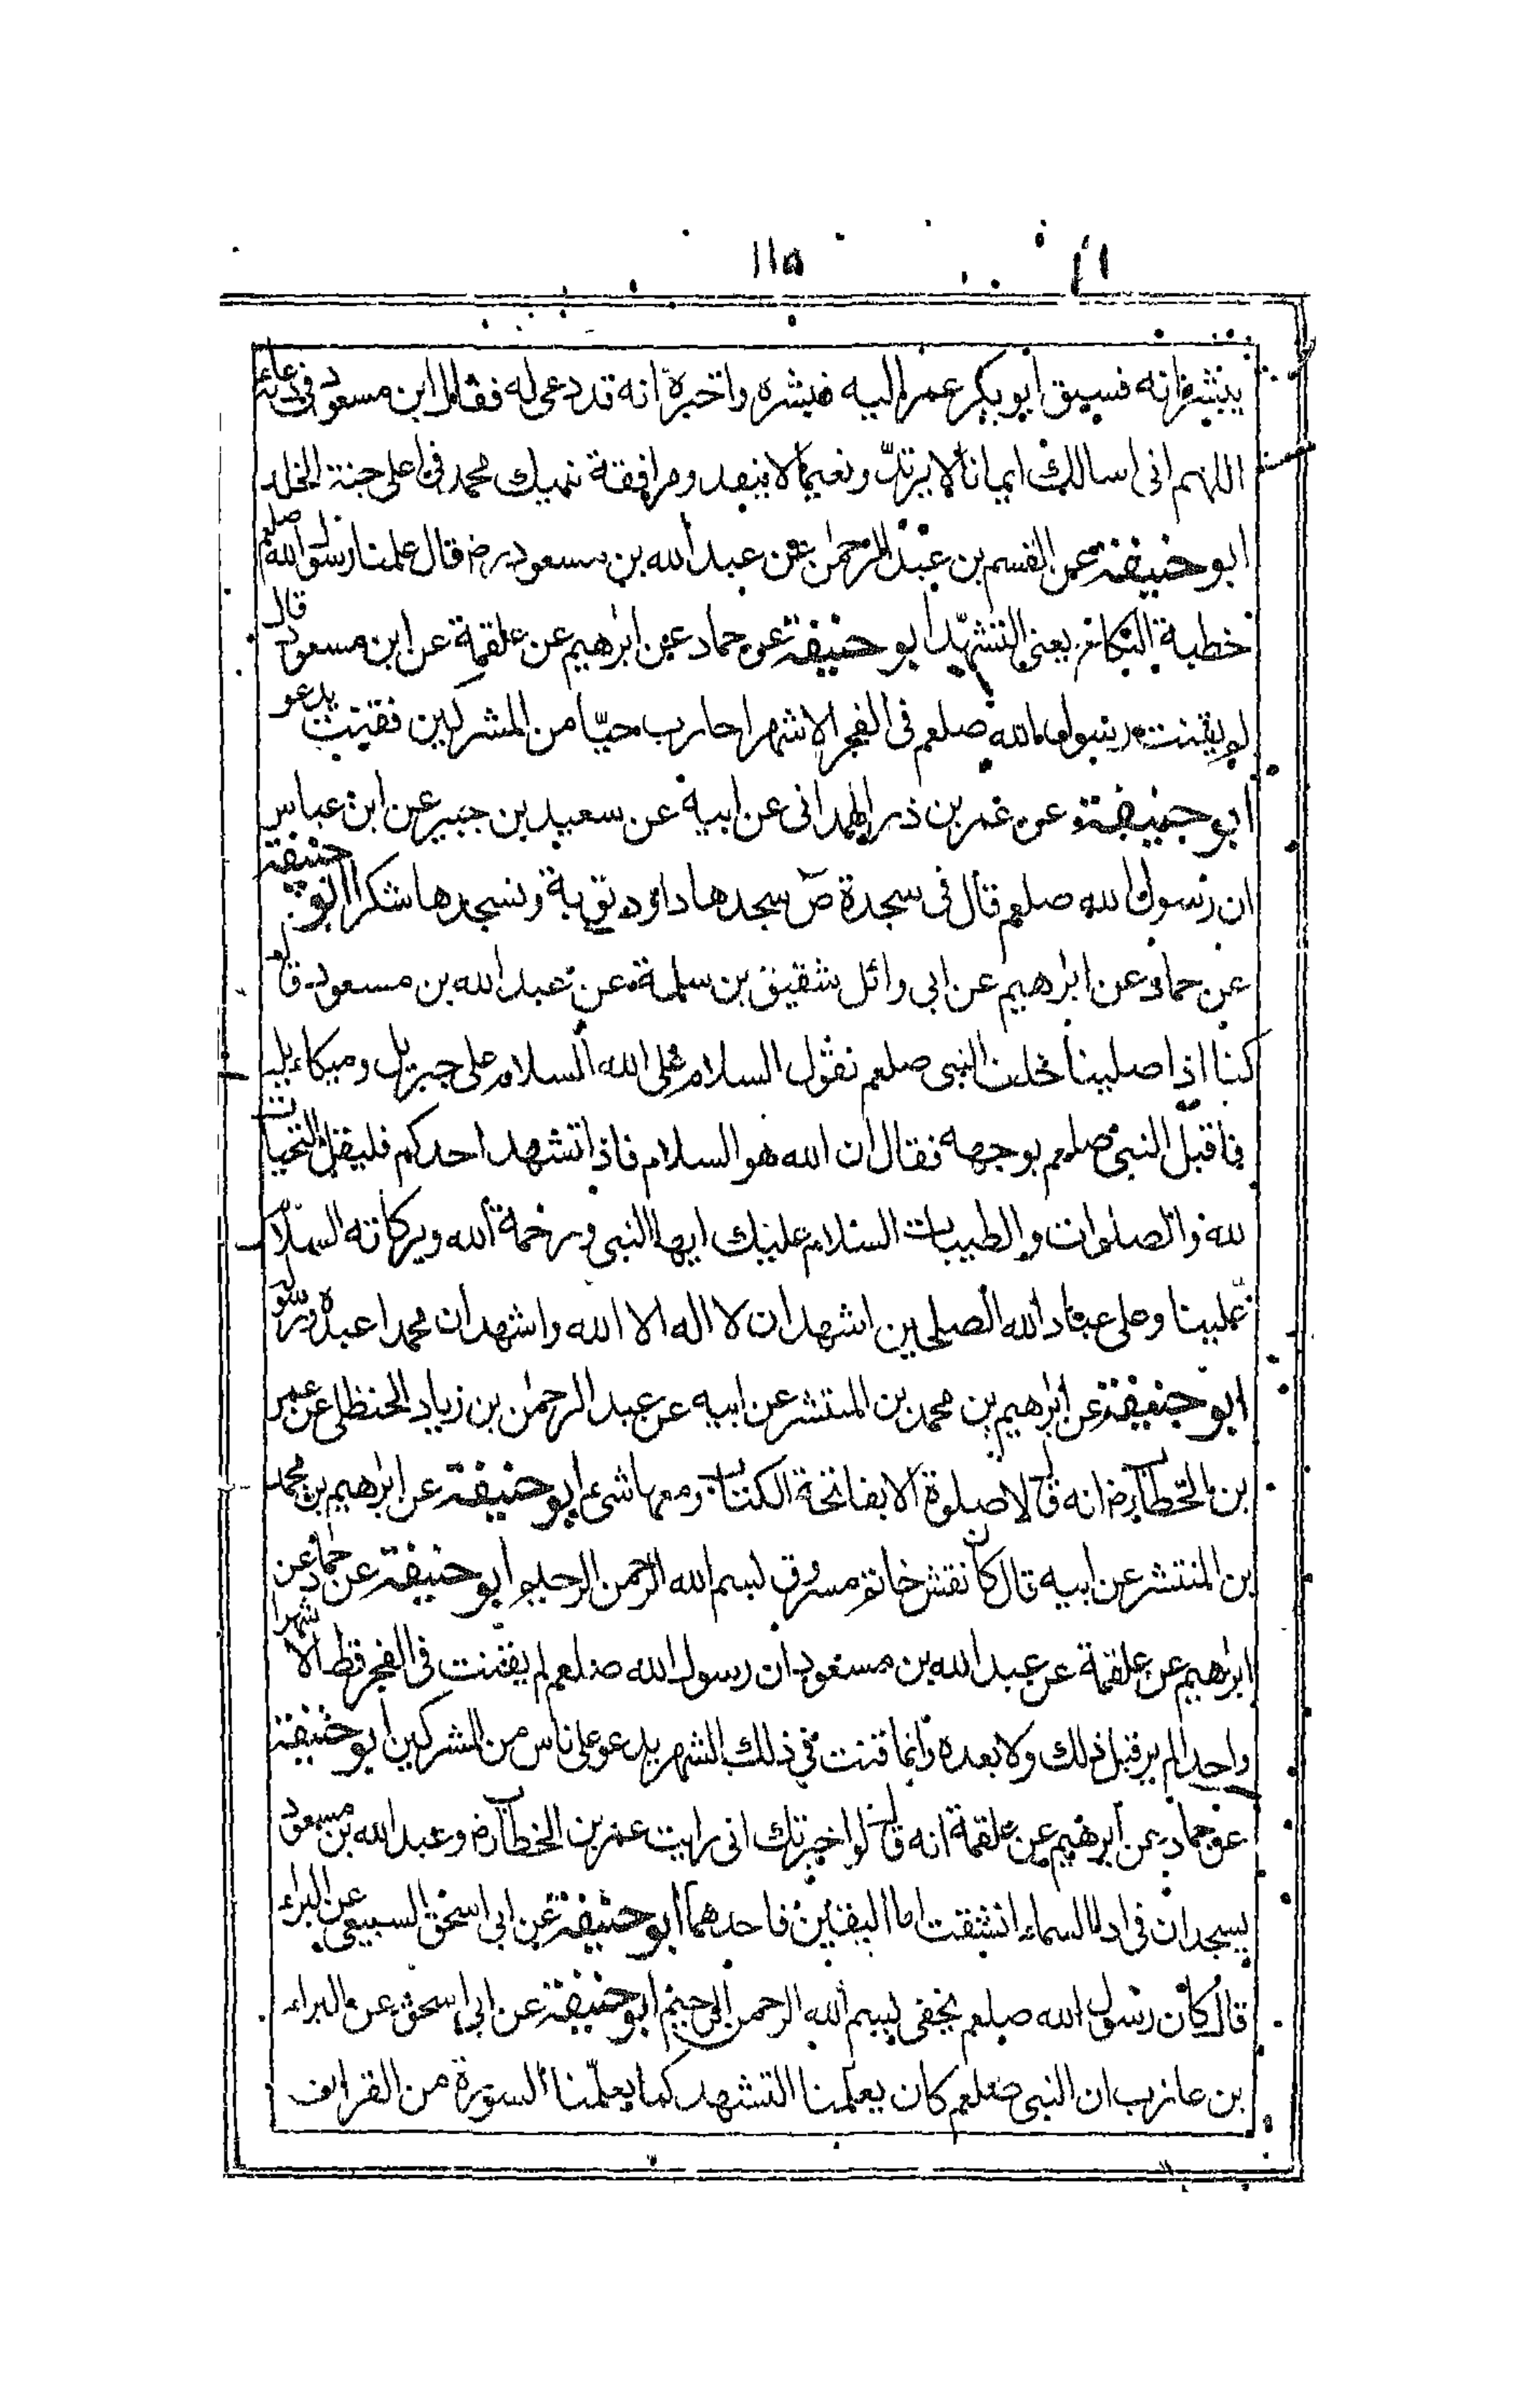 ١١٥
يبشرانه فسبق ابو بكر عمر اليه فبشره واخبره انه قد دعى له فقال ابن مسعود فى دعائه
اللهم انى اسالك ايمانا لا يرتد ونعيما لا ينفد ومرافقة نبيك محمد فى اعلى جنة الخلد
ابو حنيفة عن القسم بن عبد الرحمن عن عبد الله بن مسعود رض قال علمنا رسول الله صلعم
خطبة النكاح يعنى التشهد ابو حنيفة عن حماد عن ابرهيم عن علقمة عن ابن مسعود قال
لم يقنت رسول الله صلعم فى الفجر الا شهرا حارب حيّا من المشركين فقنت يدعو
ابو حنيفة عن عمر بن ذر الهمدانى عن ابيه عن سعيد بن جبير عن ابن عباس
ان رسول الله صلعم قال فى سجدة ص سجدها داود توبة ونسجدها شكرا ابو حنيفة
عن حماد عن ابرهيم عن ابى وائل شقيق بن سلمة عن عبد الله بن مسعود قال
كنا اذا صلينا خلف النبى صلعم نقول السلام على الله السلام على جبريل وميكاءيل
فاقبل النبى صلعم بوجهه فقال ان الله هو السلام فاذا تشهد احدكم فليقل التحيات
لله والصلوات والطيبات السلام عليك ايها النبى ورحمة الله وبركاته السلام
علينا وعلى عباد الله الصلحين اشهد ان لا اله الا الله واشهد ان محمدا عبده ورسوله
ابو حنيفة عن ابرهيم بن محمد بن المنتشر عن ابيه عن عبد الرحمن بن زياد الحنظلى عن عمر
بن الخطاب رض انه قال لا صلوة الا بفاتحة الكتاب ومعها شىء ابو حنيفة عن ابرهيم بن محمد
بن المنتشر عن ابيه قال كان نقش خاتم مسروق بسم الله الرحمن الرحيم ابو حنيفة عن حماد عن
ابرهيم عن علقمة عن عبد الله بن مسعود ان رسول الله صلعم لم يقنت فى الفجر قط الا شهرا
واحدا لم ير قبل ذلك ولا بعده وانما قنت فى ذلك الشهر يدعو على ناس من المشركين ابو حنيفة
عن حماد عن ابرهيم عن علقمة انه قال لو اخبرتك انى رايت عمر بن الخطاب رض وعبد الله بن مسعود
يسجدان فى اذا السماء انشقت اما اليقين فاحدهما ابو حنيفة عن ابى اسحق السبيعى عن البراء
قال كان رسول الله صلعم يخفى بسم الله الرحمن الرحيم ابو حنيفة عن ابى اسحق عن البراء
بن عازب ان النبى صلعم كان يعلمنا التشهد كما يعلّمنا السورة من القران